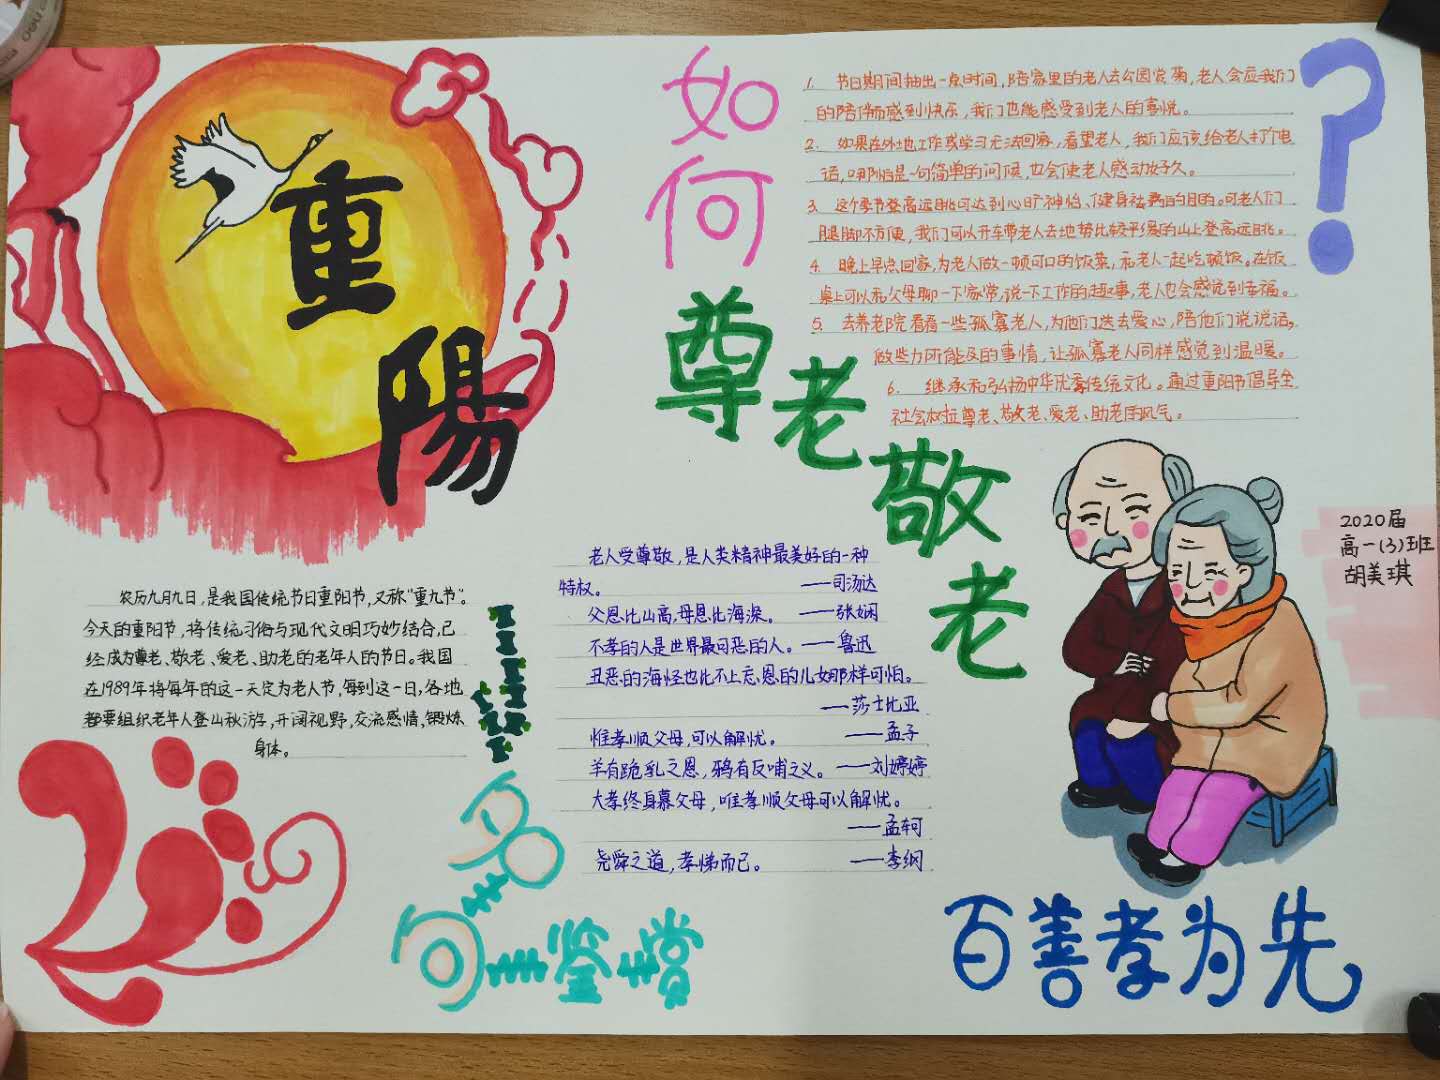 重
陽
如
何
尊
老
敬
老
?
1. 节日期间抽出一点时间,陪家里的老人去公园赏菊,老人会应我们
的陪伴而感到快乐,我们也能感受到老人的喜悦。
2. 如果在外地工作或学习无法回家,看望老人,我们应该给老人打个电
话,哪怕是一句简单的问候,也会使老人感动好久。
3. 这个季节登高远眺可达到心旷神怡、健身祛病的目的。可老人们
腿脚不方便,我们可以开车带老人去地势比较平缓的山上登高远眺。
4. 晚上早点回家,为老人做一顿可口的饭菜,和老人一起吃顿饭。在饭
桌上可以和父母聊一下家常,说一下工作的趣事,老人也会感觉到幸福。
5. 去养老院看看一些孤寡老人,为他们送去爱心,陪他们说说话,
做些力所能及的事情,让孤寡老人同样感觉到温暖。
6. 继承和弘扬中华优秀传统文化。通过重阳节倡导全
社会树立尊老、敬老、爱老、助老的风气。
2020届
高一(3)班
胡美琪
农历九月九日,是我国传统节日重阳节,又称"重九节"。
今天的重阳节,将传统习俗与现代文明巧妙结合,已
经成为尊老、敬老、爱老、助老的老年人的节日。我国
在1989年将每年的这一天定为老人节,每到这一日,各地
都要组织老年人登山秋游,开阔视野,交流感情,锻炼
身体。
老人受尊敬,是人类精神最美好的一种
特权。 ——司汤达
父恩比山高,母恩比海深。 ——张娴
不孝的人是世界最可恶的人。——鲁迅
丑恶的海怪也比不上忘恩的儿女那样可怕。
——莎士比亚
惟孝顺父母,可以解忧。 ——孟子
羊有跪乳之恩,鸦有反哺之义。——刘婷婷
大孝终身慕父母,唯孝顺父母可以解忧。
——孟轲
尧舜之道,孝悌而已。 ——李纲
名
句鉴赏
百善孝为先